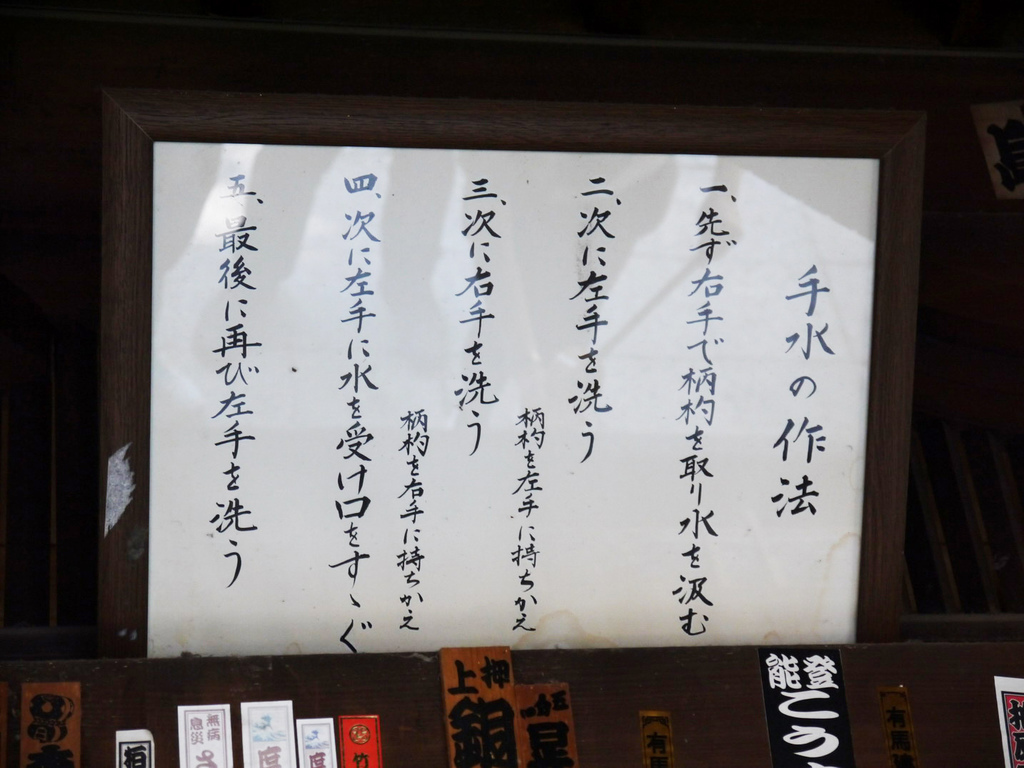 手水の作法
一、先ず右手で柄杓を取り水を汲む
二、次に左手を洗う
柄杓を左手に持ちかえ
三、次に右手を洗う
柄杓を右手に持ちかえ
四、次に左手に水を受け口をすゝぐ
五、最後に再び左手を洗う
上押
銅
無病
息災
竹
有馬
能登
こう
有馬